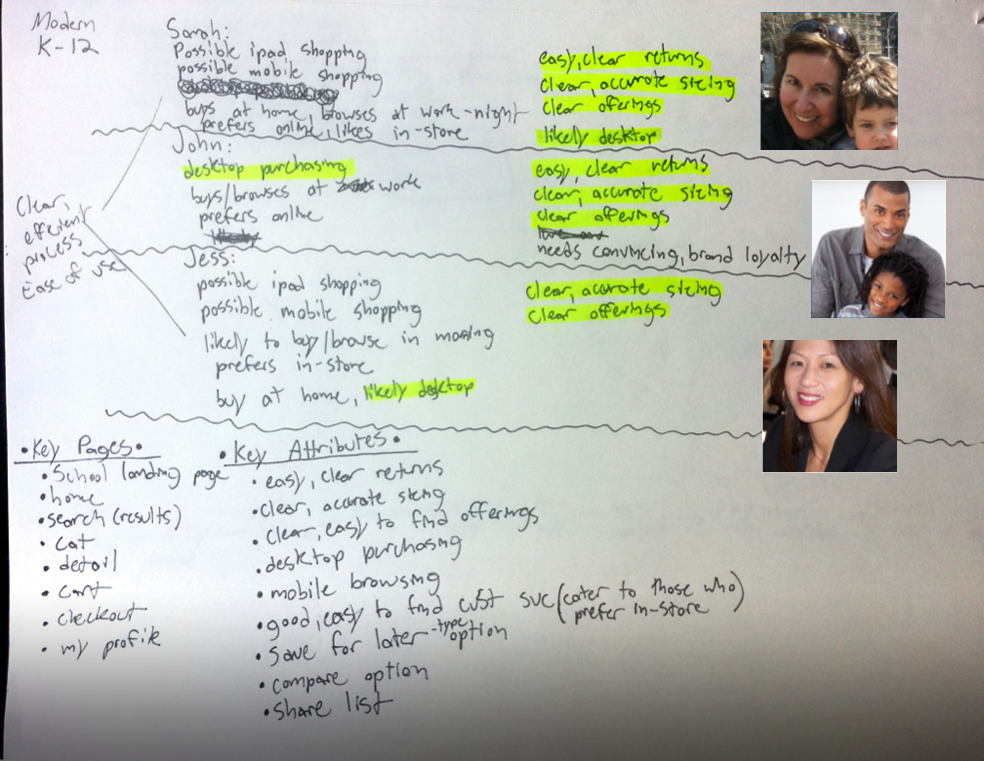 Modern
K-12
Sarah:
Possible ipad shopping
possible mobile shopping
buys at home, browses at work-night
prefers online, likes in-store
easy, clear returns
clear, accurate sizing
clear offerings
likely desktop
John:
desktop purchasing
buys/browses at work
prefers online
easy, clear returns
clear, accurate sizing
clear offerings
needs convincing, brand loyalty
Clear,
efficient
process
Ease of use
Jess:
possible ipad shopping
possible mobile shopping
likely to buy/browse in morning
prefers in-store
buy at home, likely desktop
clear, accurate sizing
clear offerings
•Key Pages•
•School landing page
•home
•search (results)
•cat
•detail
•cart
•checkout
•my profile
•Key Attributes•
•easy, clear returns
•clear, accurate sizing
•clear, easy to find offerings
•desktop purchasing
•mobile browsing
•good, easy to find cust svc (cater to those who
prefer in-store)
•save for later-type option
•compare option
•share list